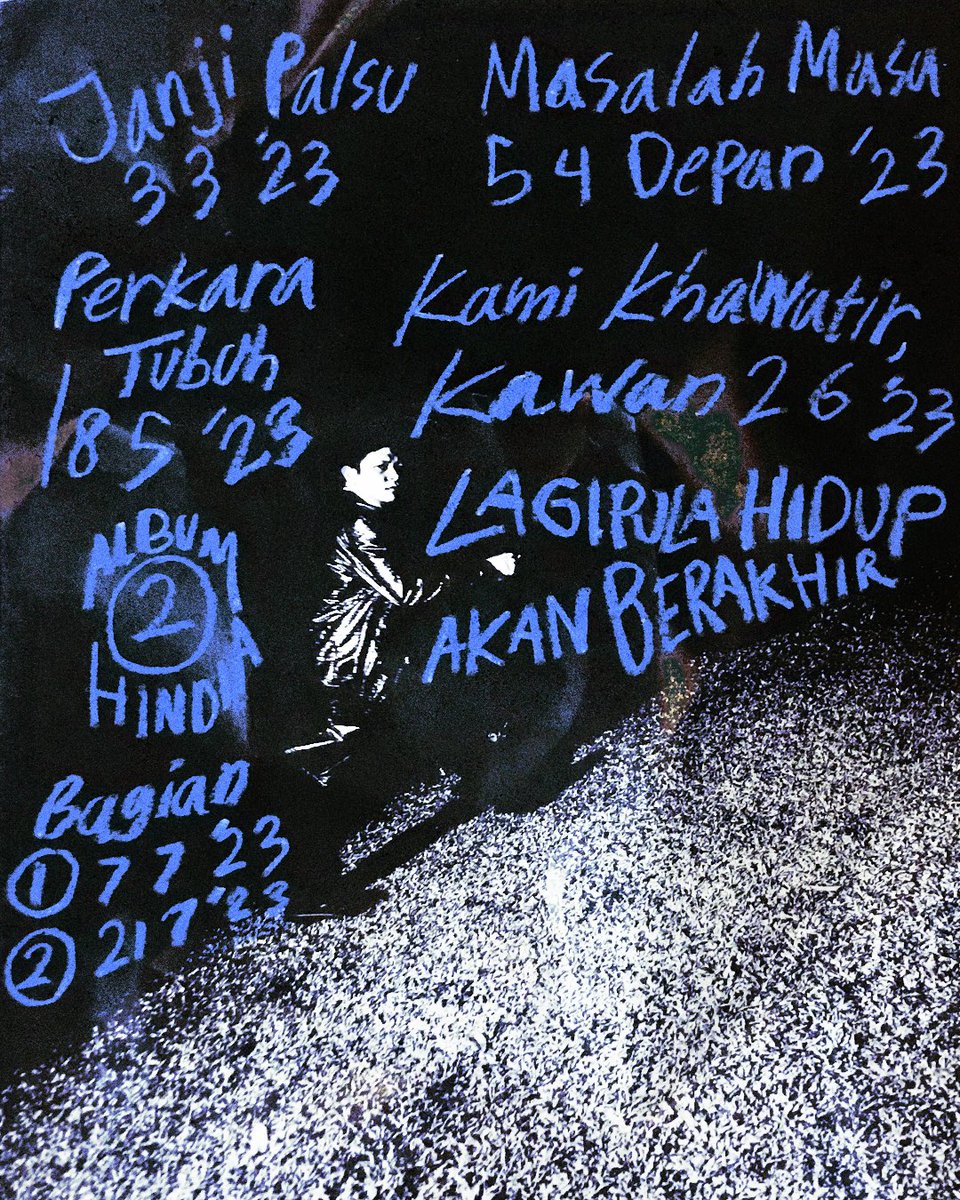 Janji Palsu
3 3 '23
Masalah Masa
5 4 Depan '23
Perkara
Tubuh
18 5 '23
Kami Khawatir,
Kawan 2 6 '23
LAGIPULA HIDUP
AKAN BERAKHIR
ALBUM
2
HINDIA
Bagian
1 7 7 '23
2 21 7 '23